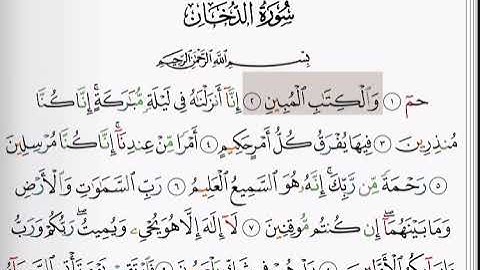 سُورَةُ الدُّخَانِ
بِسْمِ اللَّهِ الرَّحْمَٰنِ الرَّحِيمِ
حمٓ ١ وَالْكِتَٰبِ الْمُبِينِ ٢ إِنَّآ أَنزَلْنَٰهُ فِى لَيْلَةٍ مُّبَٰرَكَةٍ ۚ إِنَّا كُنَّا
مُنذِرِينَ ٣ فِيهَا يُفْرَقُ كُلُّ أَمْرٍ حَكِيمٍ ٤ أَمْرًا مِّنْ عِندِنَآ ۚ إِنَّا كُنَّا مُرْسِلِينَ
٥ رَحْمَةً مِّن رَّبِّكَ ۚ إِنَّهُۥ هُوَ السَّمِيعُ الْعَلِيمُ ٦ رَبِّ السَّمَٰوَٰتِ وَالْأَرْضِ
وَمَا بَيْنَهُمَآ ۖ إِن كُنتُم مُّوقِنِينَ ٧ لَآ إِلَٰهَ إِلَّا هُوَ يُحْىِۦ وَيُمِيتُ ۖ رَبُّكُمْ وَرَبُّ